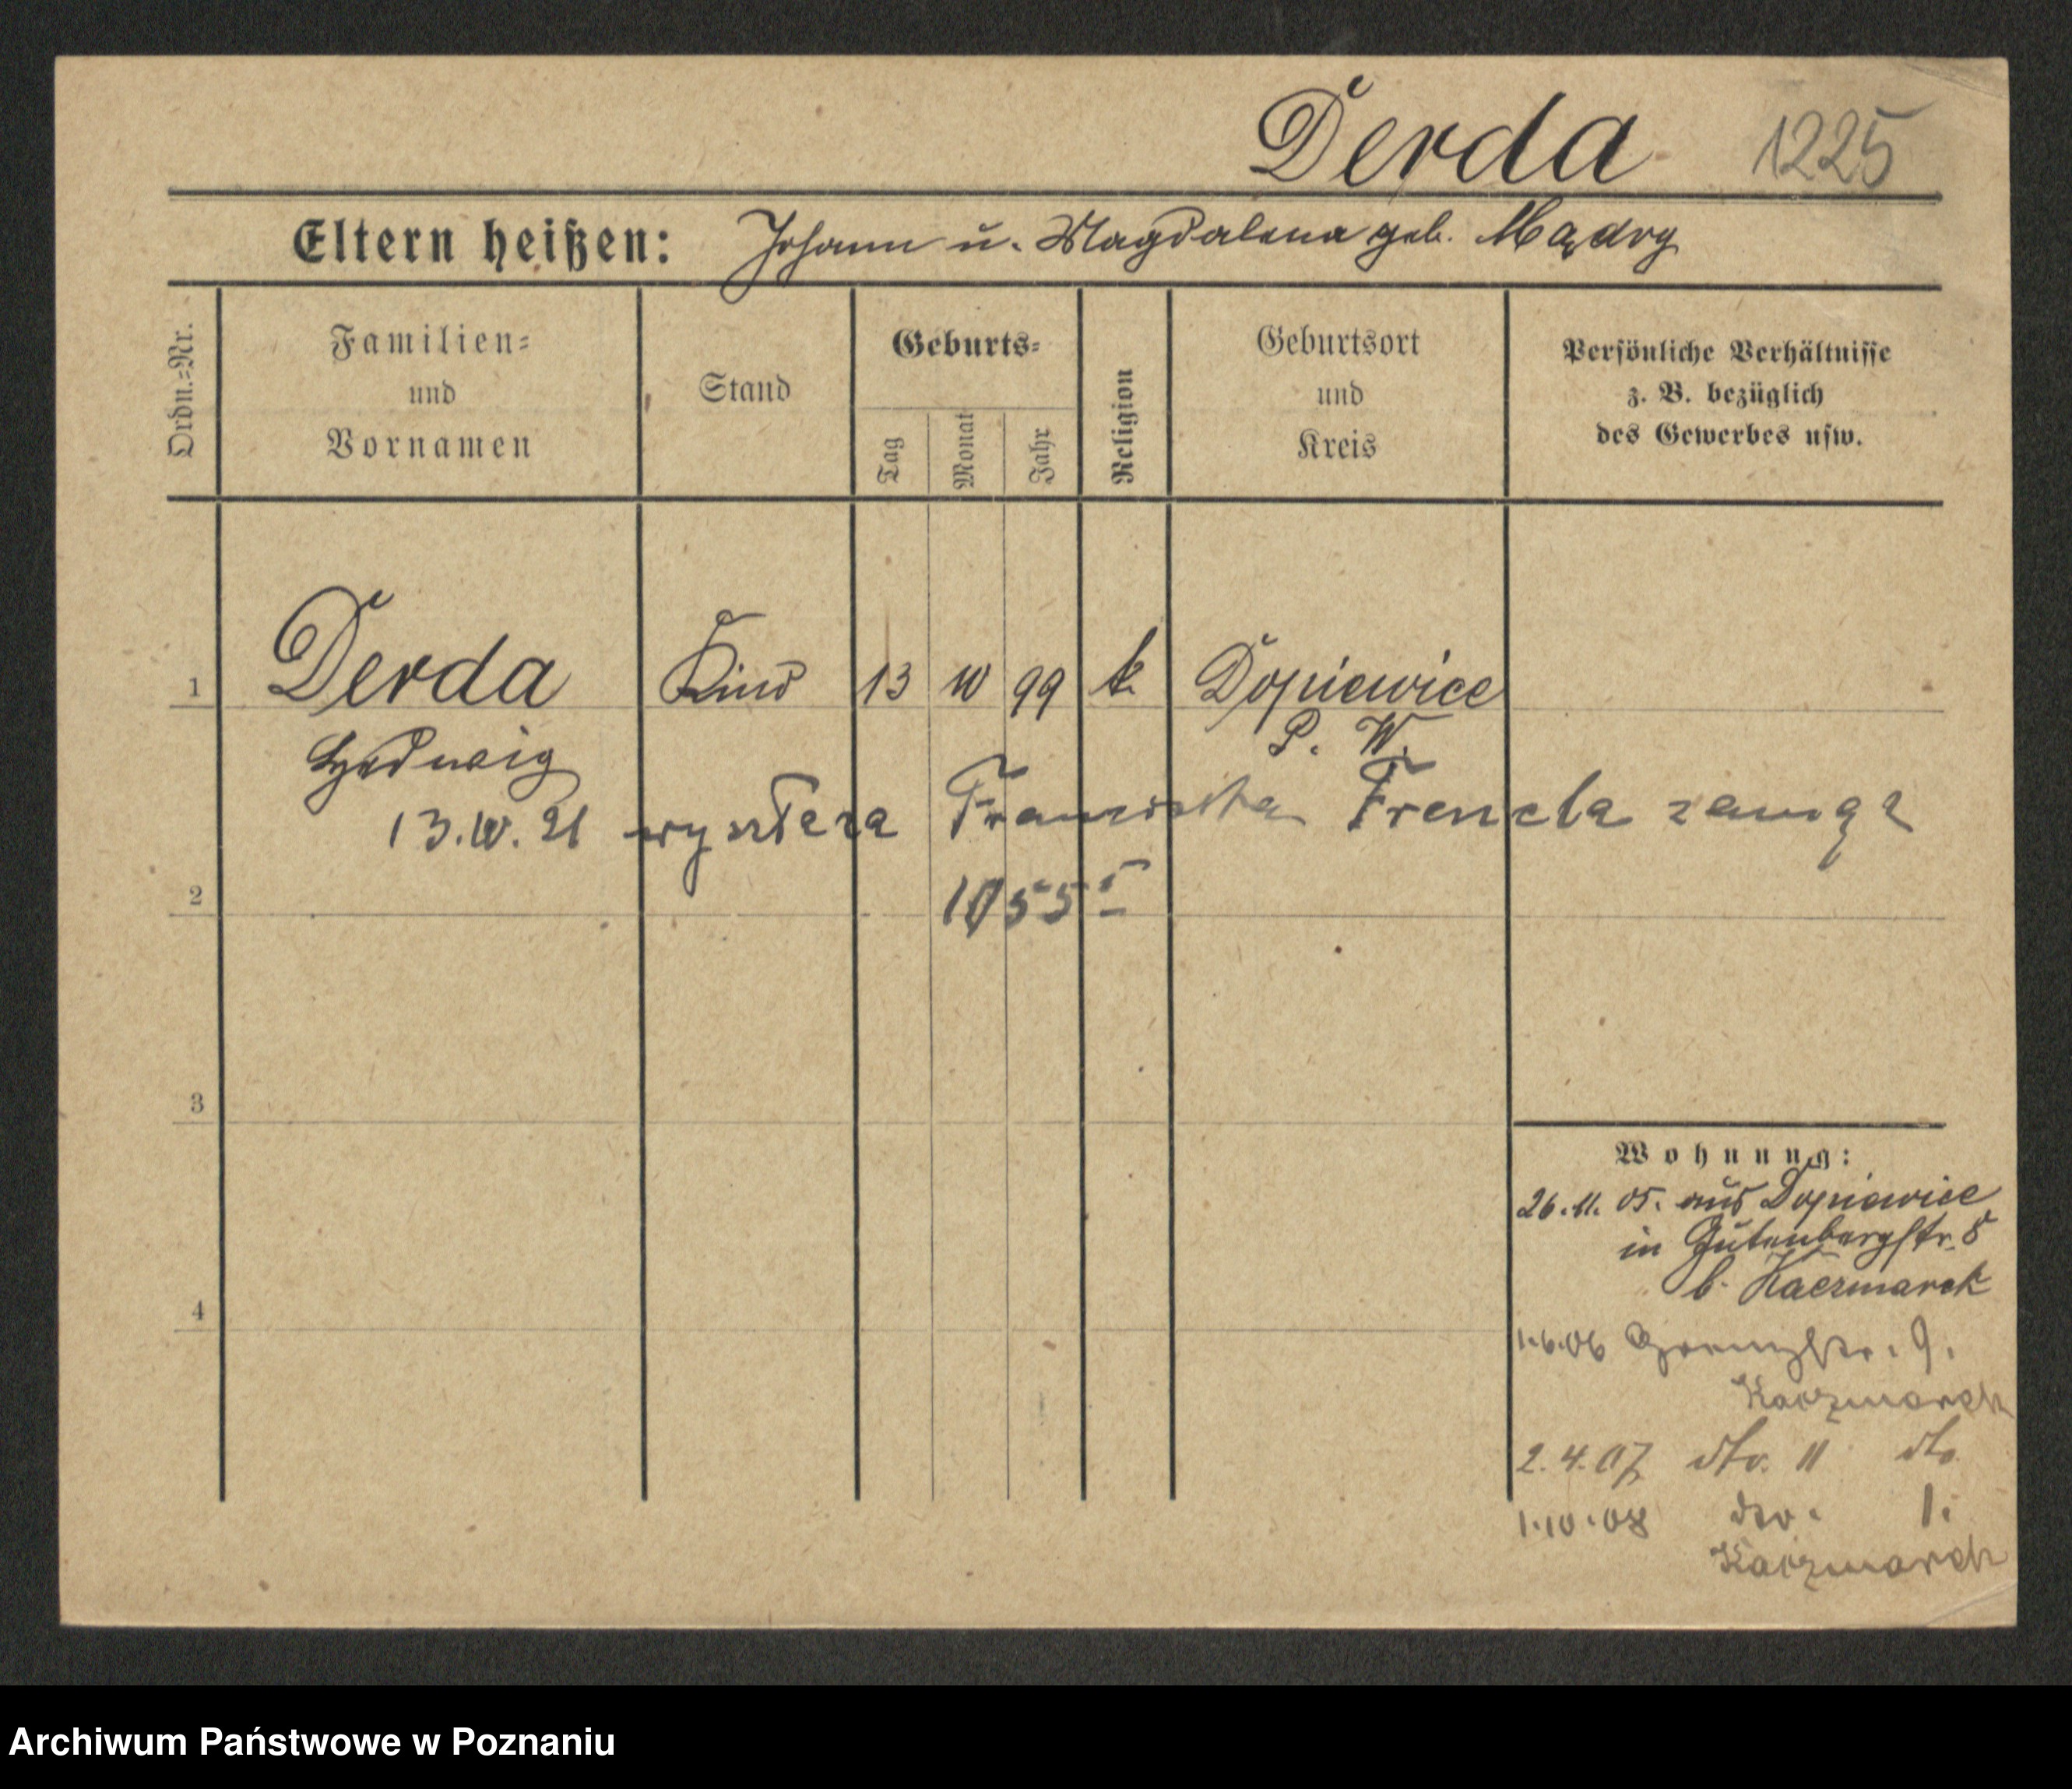 Derda 1225
Eltern heißen: Johann u. Magdalena geb. Mądry
Ordn.=Nr.
Familien=
und
Vornamen
Stand
Geburts=
Tag
Monat
Jahr
Religion
Geburtsort
und
Kreis
Persönliche Verhältnisse
z. B. bezüglich
des Gewerbes usw.
1 Derda Kind 13 10 99 k. Dopiewice
P. W.
Hedwig
13.10.21 wyszła za Franciszka Frencla zamąż
2
3
4
Wohnung:
26.11.05. aus Dopiewice
in Gutenbergstr. 8
b. Kaczmarek
1.6.06 Grenzstr. 9.
Kaczmarek
2.4.07 dto. 11 dto
1.10.08 dto. 1.
Kaczmarek
Archiwum Państwowe w Poznaniu